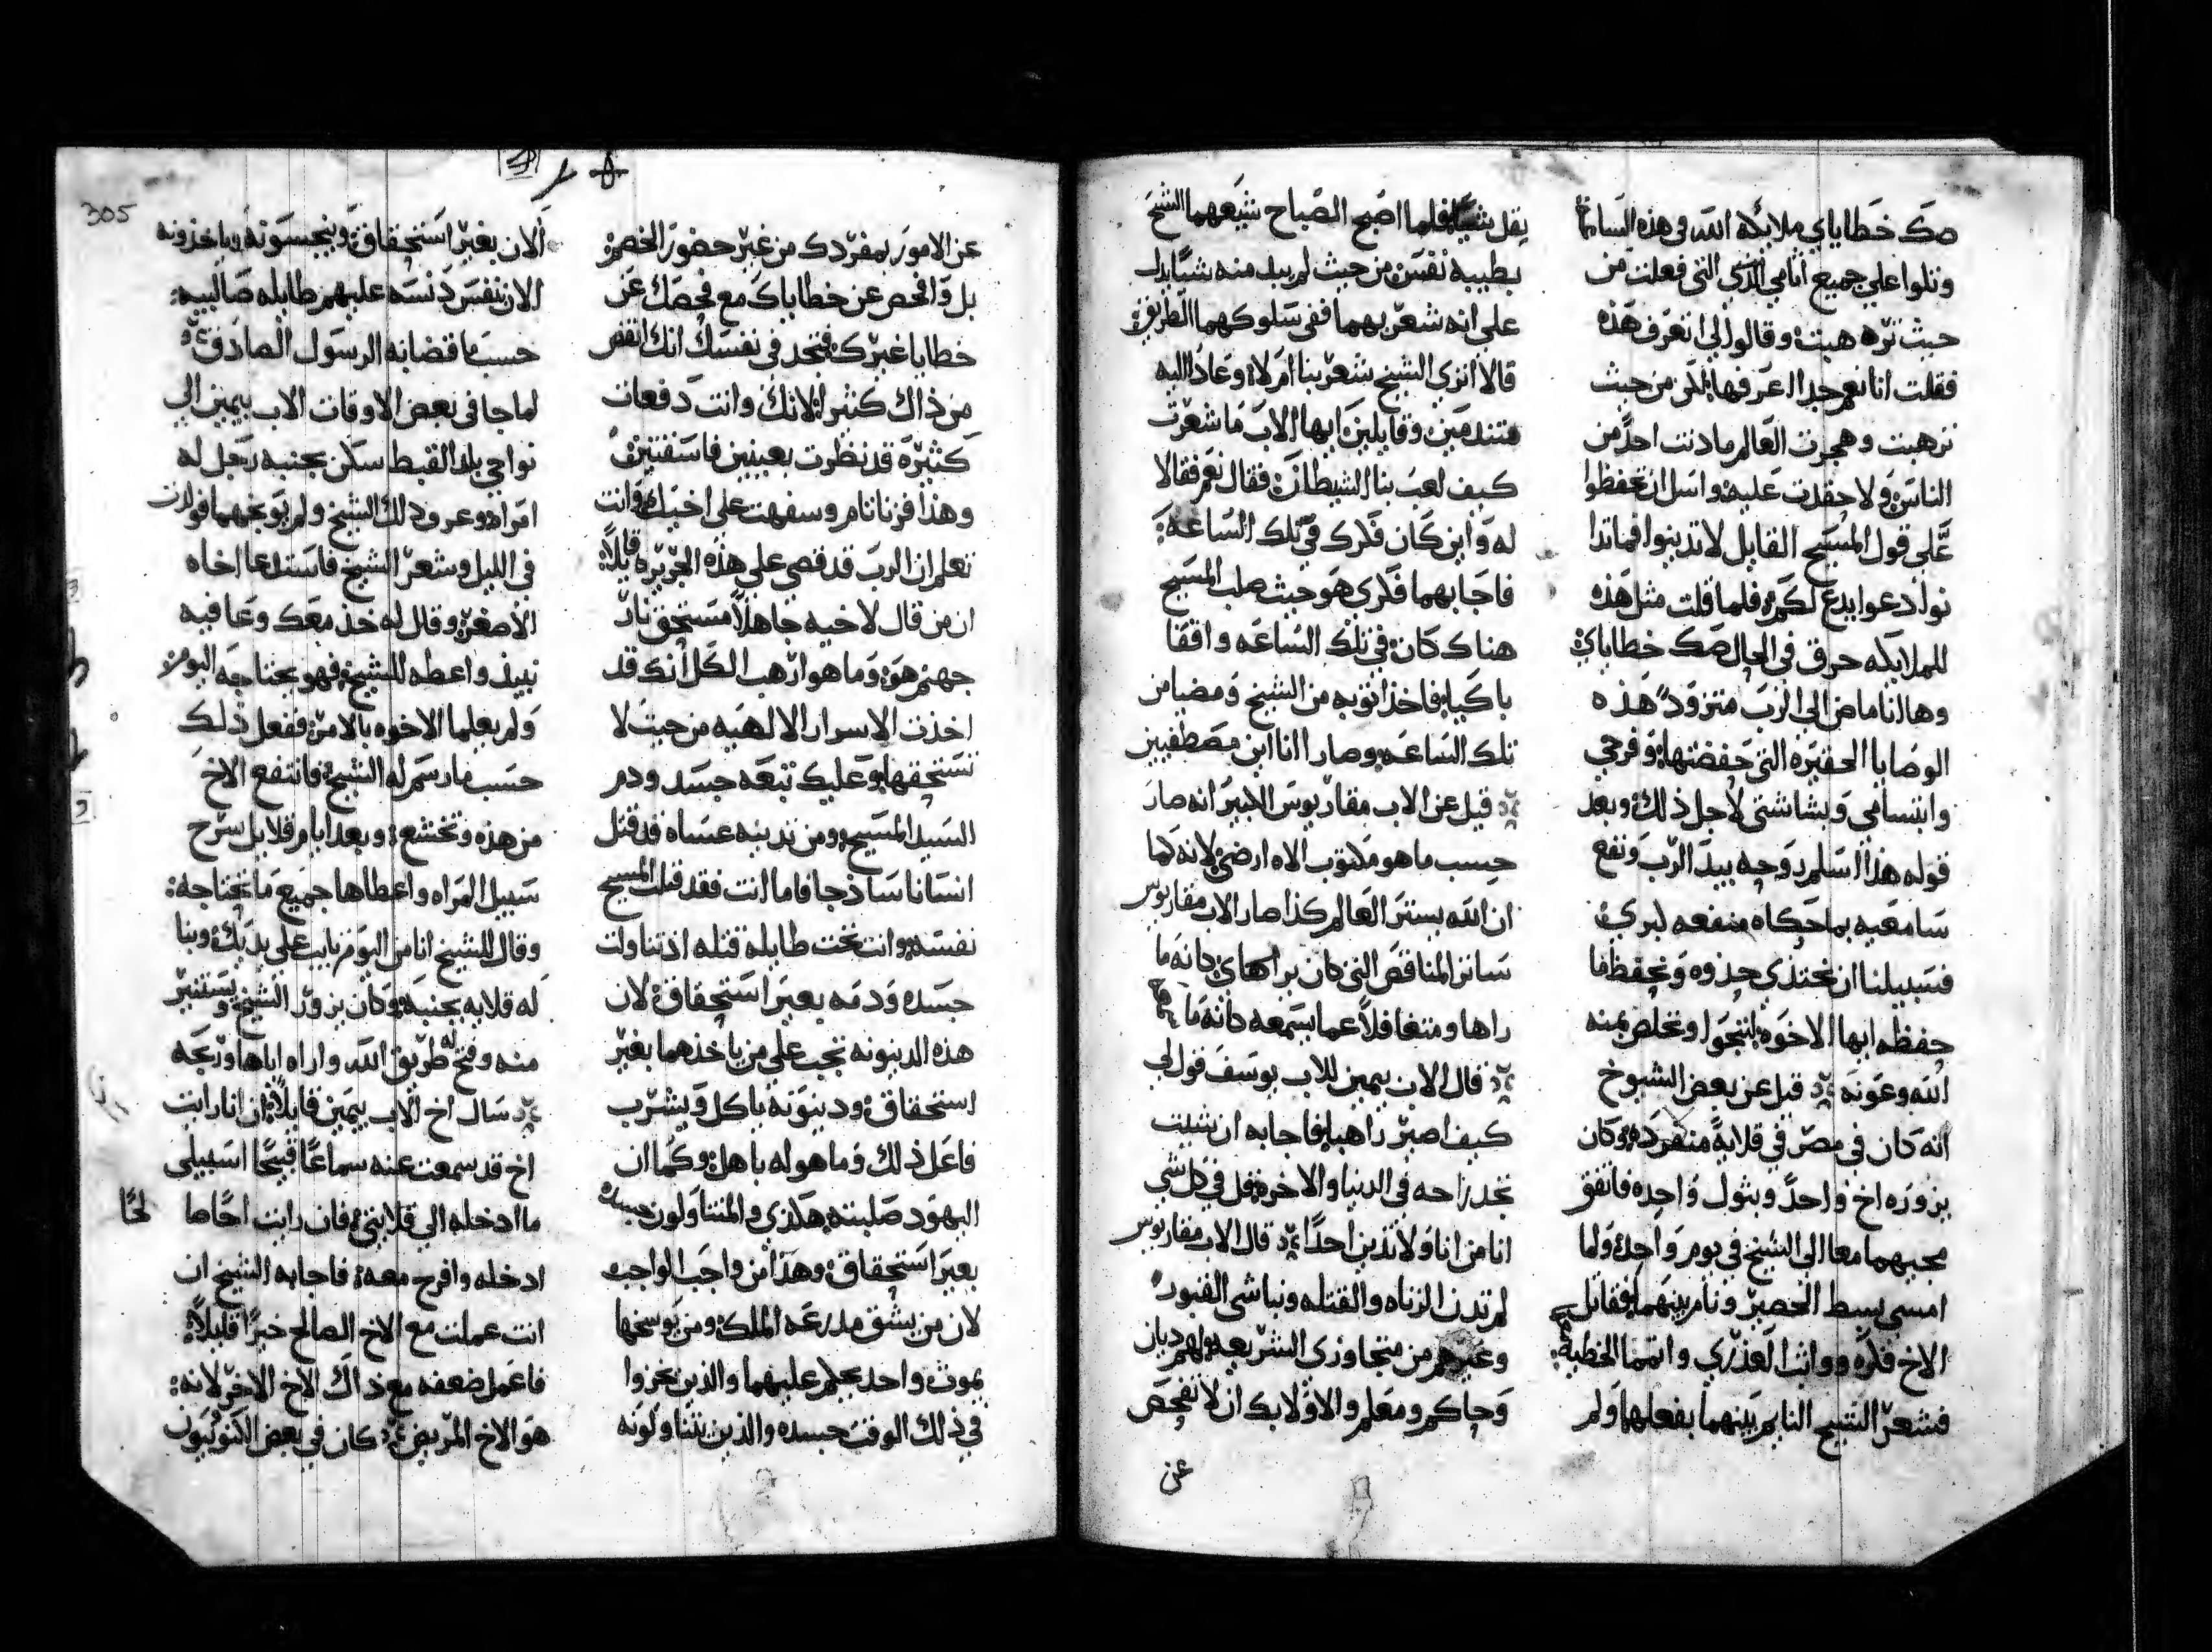 صك خطاياي ملايكة الله في هذه الساعة
وتلوا علي جميع اثامي التي فعلت من
حيث ترهبت وقالوا لي اتعرف هذه
فقلت انا نعم جدا اعرفها لكن من حيث
ترهبت وهجرت العالم ما دنت احد من
الناس ولا حقدت عليه واسل ان تحفظوا
علي قول المسيح القايل لا تدينوا فما تدا
نوا دعوا يدع لكم فلما قلت مثل هذه
للملايكه حرق في الحال صك خطاياي
وها انا ماض الي الرب متزود هذه
الوصايا الحقيره التي حفضتها وفرحي
وابتسامي وبشاشتي لاجل ذلك وبعد
قوله هذا اسلم روحه بيد الرب ونفع
سامعيه بما حكاه منفعه ليري
فسبيلنا ان نحتذي حذوه ونحفظ ما
حفظه ايها الاخوه لننجوا ونخلص بمنه
الله وعونه قيل عن بعض الشيوخ
انه كان في مصر في قلاية منفرده وكان
يزوره اخ واحد وبتول واحده فاتفق
مجيهما معا الي الشيخ في يوم واحد ولما
امسي بسط الحصير ونام بينهما فقاتل
الاخ فكره وواثب العذري واتمما الخطيه
فشعر الشيخ النايم بينهما بفعلهما ولم
يقل شيا فلما اصبح الصباح شيعهما الشيخ
بطيبه نفس من حيث لم يبد منه شيا يدل
علي انه شعر بهما ففي سلوكهما الطريق
قالا اتري الشيخ شعر بنا ام لا وعادا اليه
متندمين وقايلين ايها الاب ما شعرت
كيف لعب بنا الشيطان فقال نعم فقالا
له واين كان فكرك في تلك الساعه
فاجابهما فكري هو حيث صلب المسيح
هناك كان في تلك الساعه واقفا
باكيا فاخذا توبه من الشيخ ومضيا من
تلك الساعه وصارا انااين مصطفيين
قيل عن الاب مقاريوس الكبير انه صار
حسب ما هو مكتوب الاه ارضي لانه كما
ان الله يستر العالم كذا صار الاب مقاريوس
ساترا المناقص التي كان يراها كانه ما
راها ومتغافلا عما يسمعه كانه ما
قال الاب بيمين للاب يوسف قول لي
كيف اصير راهبا فاجابه ان شيت
تجد راحه في الدنيا والاخره قل في كل شي
انا من انا ولا تدين احدا قال الاب مقاريوس
لم تدن الزناه والقتله ونباشي القبور
وغيرهم من متجاوزي الشريعه ولهم ديان
وحاكم ومعلم والاولا بك ان لا تفحص
عن
305
عن الامور بمفردك من غير حضور الخصم
بل وافحص عن خطاياك مع فحصك عن
خطايا غيرك فتجد في نفسك انك انقض
من ذاك كثير لانك وانت دفعات
كثيره قد نظرت بعينين فاسقتين
وهذا فزنا نام وسفهت علي اخيك وانت
تعلم ان الرب قد قصي علي هذه الجريره قايلا
ان من قال لاخيه جاهلا مستحق نار
جهنم هو وما هو ارهب الكل انك قد
اخذت الاسرار الالهيه من حيث لا
تستحقها وعليك تبعه جسد ودم
السيد المسيح ومن تدينه عساه قد قتل
انسانا ساذجا فاما انت فقد قتلت المسيح
نفسه وانت تحت طايلة قتله اذ تناولت
جسده ودمه بغير استحقاق لان
هذه الدينونه تجب علي من ياخذهما بغير
استحقاق ودينونه ياكل ويشرب
فاعل ذلك وما هو له باهل وكما ان
اليهود صلبته هكذي والمتناولون جسده
بغير استحقاق وهذا من واجب الواجب
لان من يشق مدرعه الملك ومن يوسخها
بموت واحد يحكم عليهما والذين نحزوا
في ذلك الوقت جسده والذين يتناولونه
الان بغير استحقاق وينجسونه وياخذونه
الان بنفس دنسه عليهم طايله صالبيه
حسب ما قضا به الرسول الصادق
لما جا في بعض الاوقات الاب بيمين الي
نواحي بلد القبط سكن بجنبه رجل له
امراه وعرف ذلك الشيخ ولم يوبخهما فولدت
في الليل وشعر الشيخ فاستدعا اخاه
الاصغر وقال له خذ معك وعا فيه
نبيذ واعطه للشيخ فهو يحتاجه اليوم
ولم يعلما الاخوه بالامر ففعل ذلك
حسب ما رسم له الشيخ فانتفع الاخ
من هذه وتخشع وبعد ايام قلايل سرح
سبيل المراه واعطاها جميع ما تحتاجه
وقال للشيخ انا من اليوم تايب علي يديك وبنا
له قلايه بجنبه وكان يزور الشيخ ويستنير
منه وفتح له طريق الله واراه اياها وربحه
سال اخ الاب بيمين قايلا ان انا رايت
اخ قد سمعت عنه سماعا قبيحا اسبيلي
ما ادخله الي قلايتي فان رايت اخا صا لحا
ادخله وافرح معه فاجابه الشيخ ان
انت عملت مع الاخ الصالح خيرا قليلا
فاعمل ضعفه مع ذاك الاخ الاخر لانه
هو الاخ المريض كان في بعض الكنوبيون